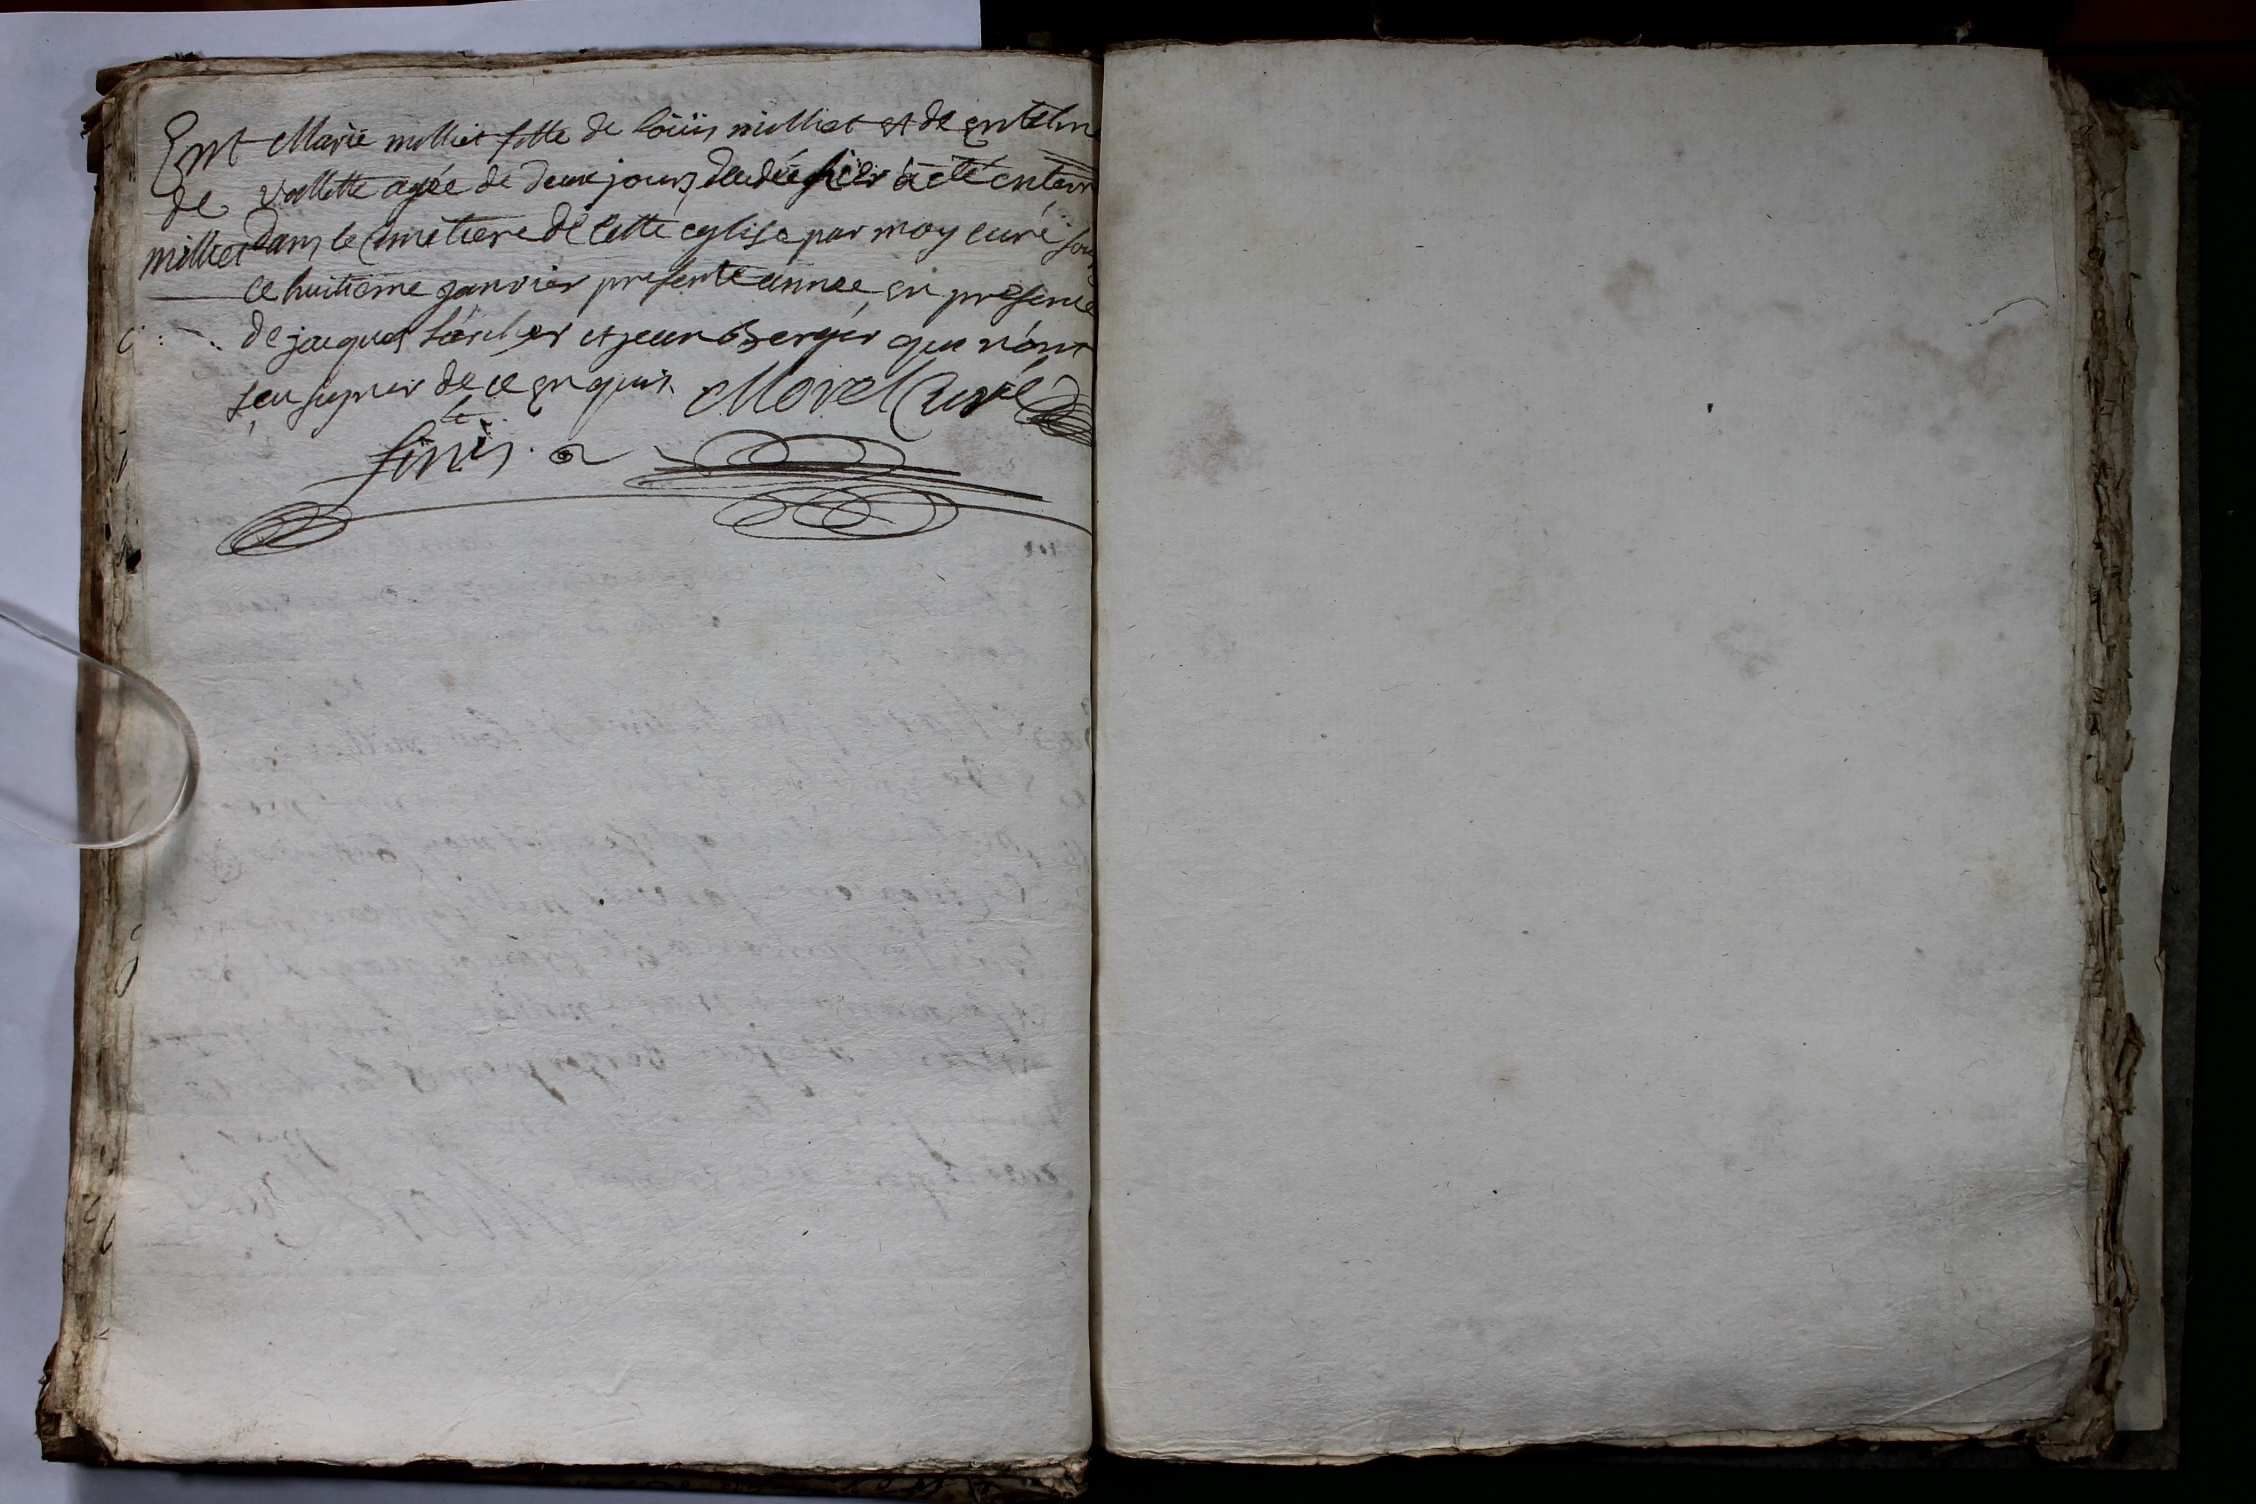 Ent Marie milliet fille de loüis milliet et de entelme
de vallette agée de deux jours decedée hier à eté enterr
milliet dans le Cimetiere de cette eglise par moy curé sous
ce huitieme janvier presente année en presence
de jaques larcher et jean Berger qui n'ont
sçu signer de ce enquis Morel Curé
finis